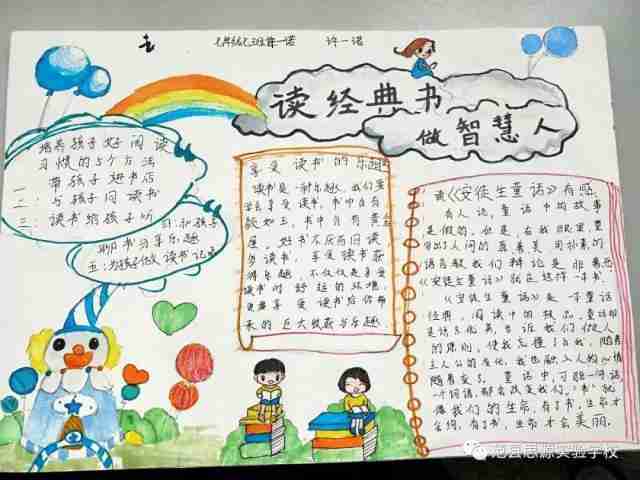 许一诺
读经典书
做智慧人
培养孩子好阅读
习惯的5个方法
一：带孩子进书店
二：与孩子同读书
三：读书给孩子听
和孩子
聊书分享乐趣
五：为孩子做读书记
享受读书的乐趣
读书是一种乐趣，我们要
学会享受读书，书中自有
颜如玉，书中自有黄金
屋。好书不厌百回读
读书，享受读书获
得乐趣，不仅仅是享受
读书时舒适的环境，
更要享受读书后给你带
来的巨大收获与乐趣
读《安徒生童话》有感
有人说，童话中的故事
是假的，但是，在我眼里，童
人间的真善美，用朴素的
语言教我们辩论是非善恶
《安徒生童话》就是这样一本书。
《安徒生童话》是一本童话
经典，阅读中的极品，童话
我们做人
的原则，使我忘懂了自我，随着
主人公的变化，我也融入人的心情
随着变了，童话中，可能一句话，
一个词语，都会改变我们，书就
像我们的生命，有了书，生命才
会绚，有了书，生命才会美丽。
范县思源实验学校